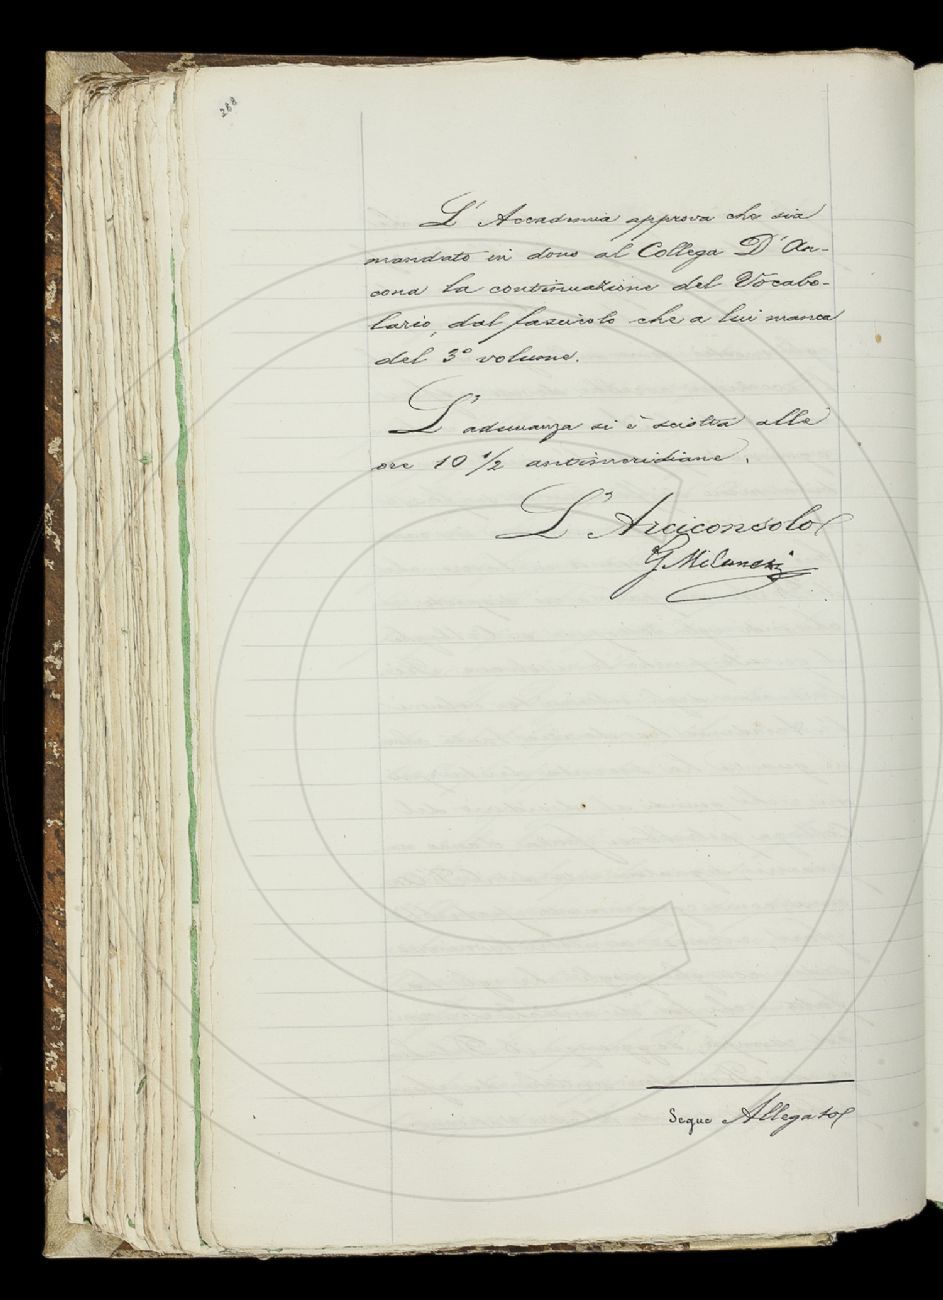 288
L'Accademia approva che sia
mandato in dono al Collega D'An-
cona la continuazione del Vocabo-
lario, dal fascicolo che a lui manca
del 3º volume.
L'adunanza si è sciolta alle
ore 10 ½ antimeridiane.
L'Arciconsolo
G Milanesi
Segue Allegato